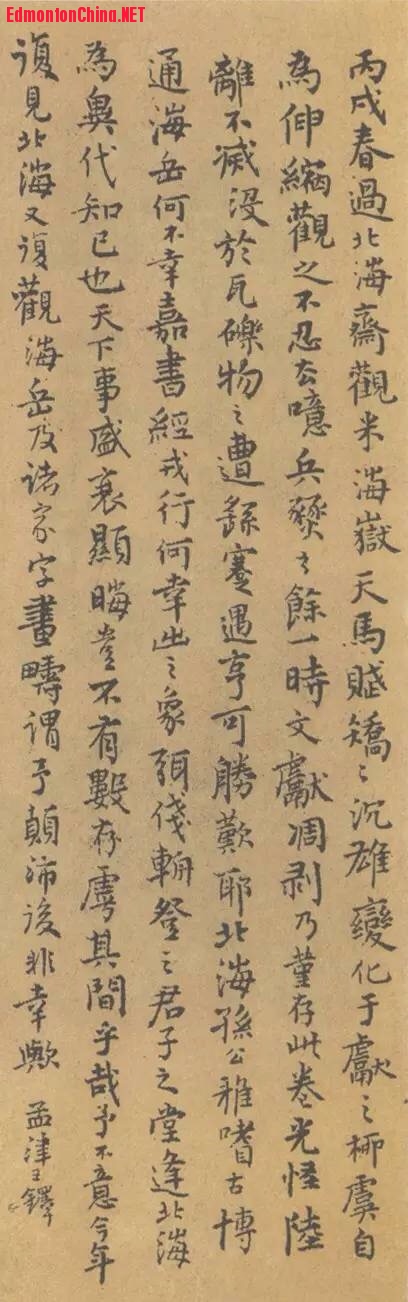 EdmontonChina.NET
丙戌春過北海齋觀米海嶽天馬賦矯〻沉雄變化于獻之柳虞自
為伸縮觀之不忍去噫兵燹之餘一時文獻凋剥乃堇存此卷光怪陸
離不滅沒於瓦礫物之遭繇蹇遇亨可勝歎耶北海孫公雅嗜古博
通海岳何不幸嘉書經戎行何幸出之象弭俴輈登之君子之堂逢北海
為異代知已也天下事盛衰顯晦豈不有數存虖其間乎哉予不意今年
復見北海又復觀海岳及諸家字畫疇謂予顛沛後非幸歟 孟津王鐸